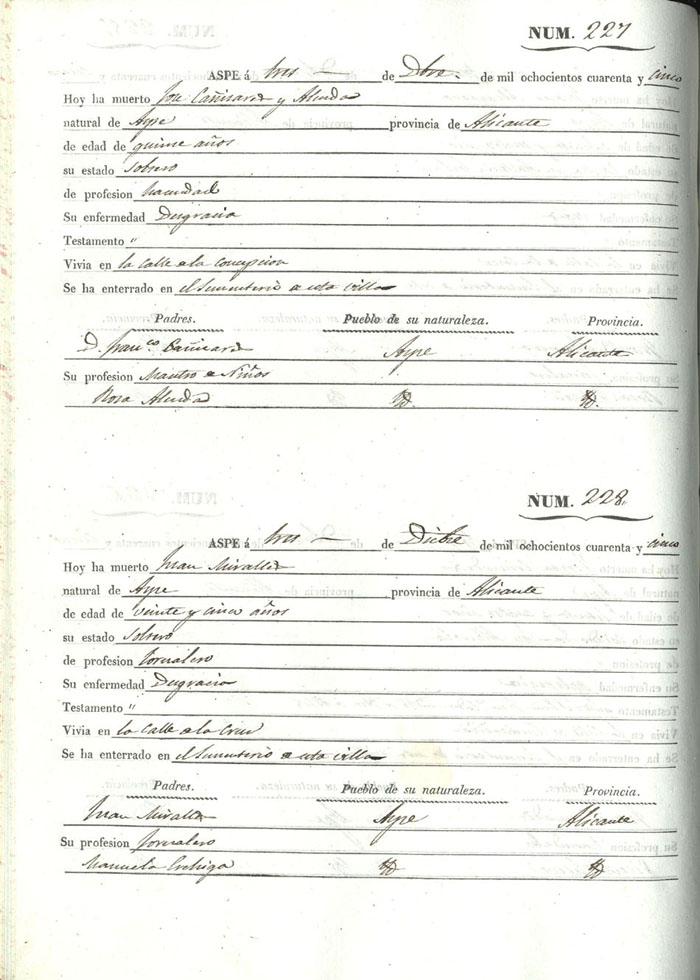 NUM. 227
ASPE á tres de Dbre. de mil ochocientos cuarenta y cinco
Hoy ha muerto Jose Cañizares y Almda
natural de Aspe provincia de Alicante
de edad de quince años
su estado Soltero
de profesion
Su enfermedad Desgracia
Testamento "
Vivia en la Calle a la Concepcion
Se ha enterrado en el Sementerio a esta villa
Padres. Pueblo de su naturaleza. Provincia.
D. Franco. Cañizares Aspe Alicante
Su profesion Maestro a Niños
Rosa Almda Yd. Yd.
NUM. 228.
ASPE á tres de Dicbre de mil ochocientos cuarenta y cinco
Hoy ha muerto Juan Miralles
natural de Aspe provincia de Alicante
de edad de veinte y cinco años
su estado Soltero
de profesion Jornalero
Su enfermedad Desgracia
Testamento "
Vivia en la Calle a la Cruz
Se ha enterrado en el Sementerio a esta villa
Padres. Pueblo de su naturaleza. Provincia.
Juan Miralles Aspe Alicante
Su profesion Jornalero
Manuela Yd Yd